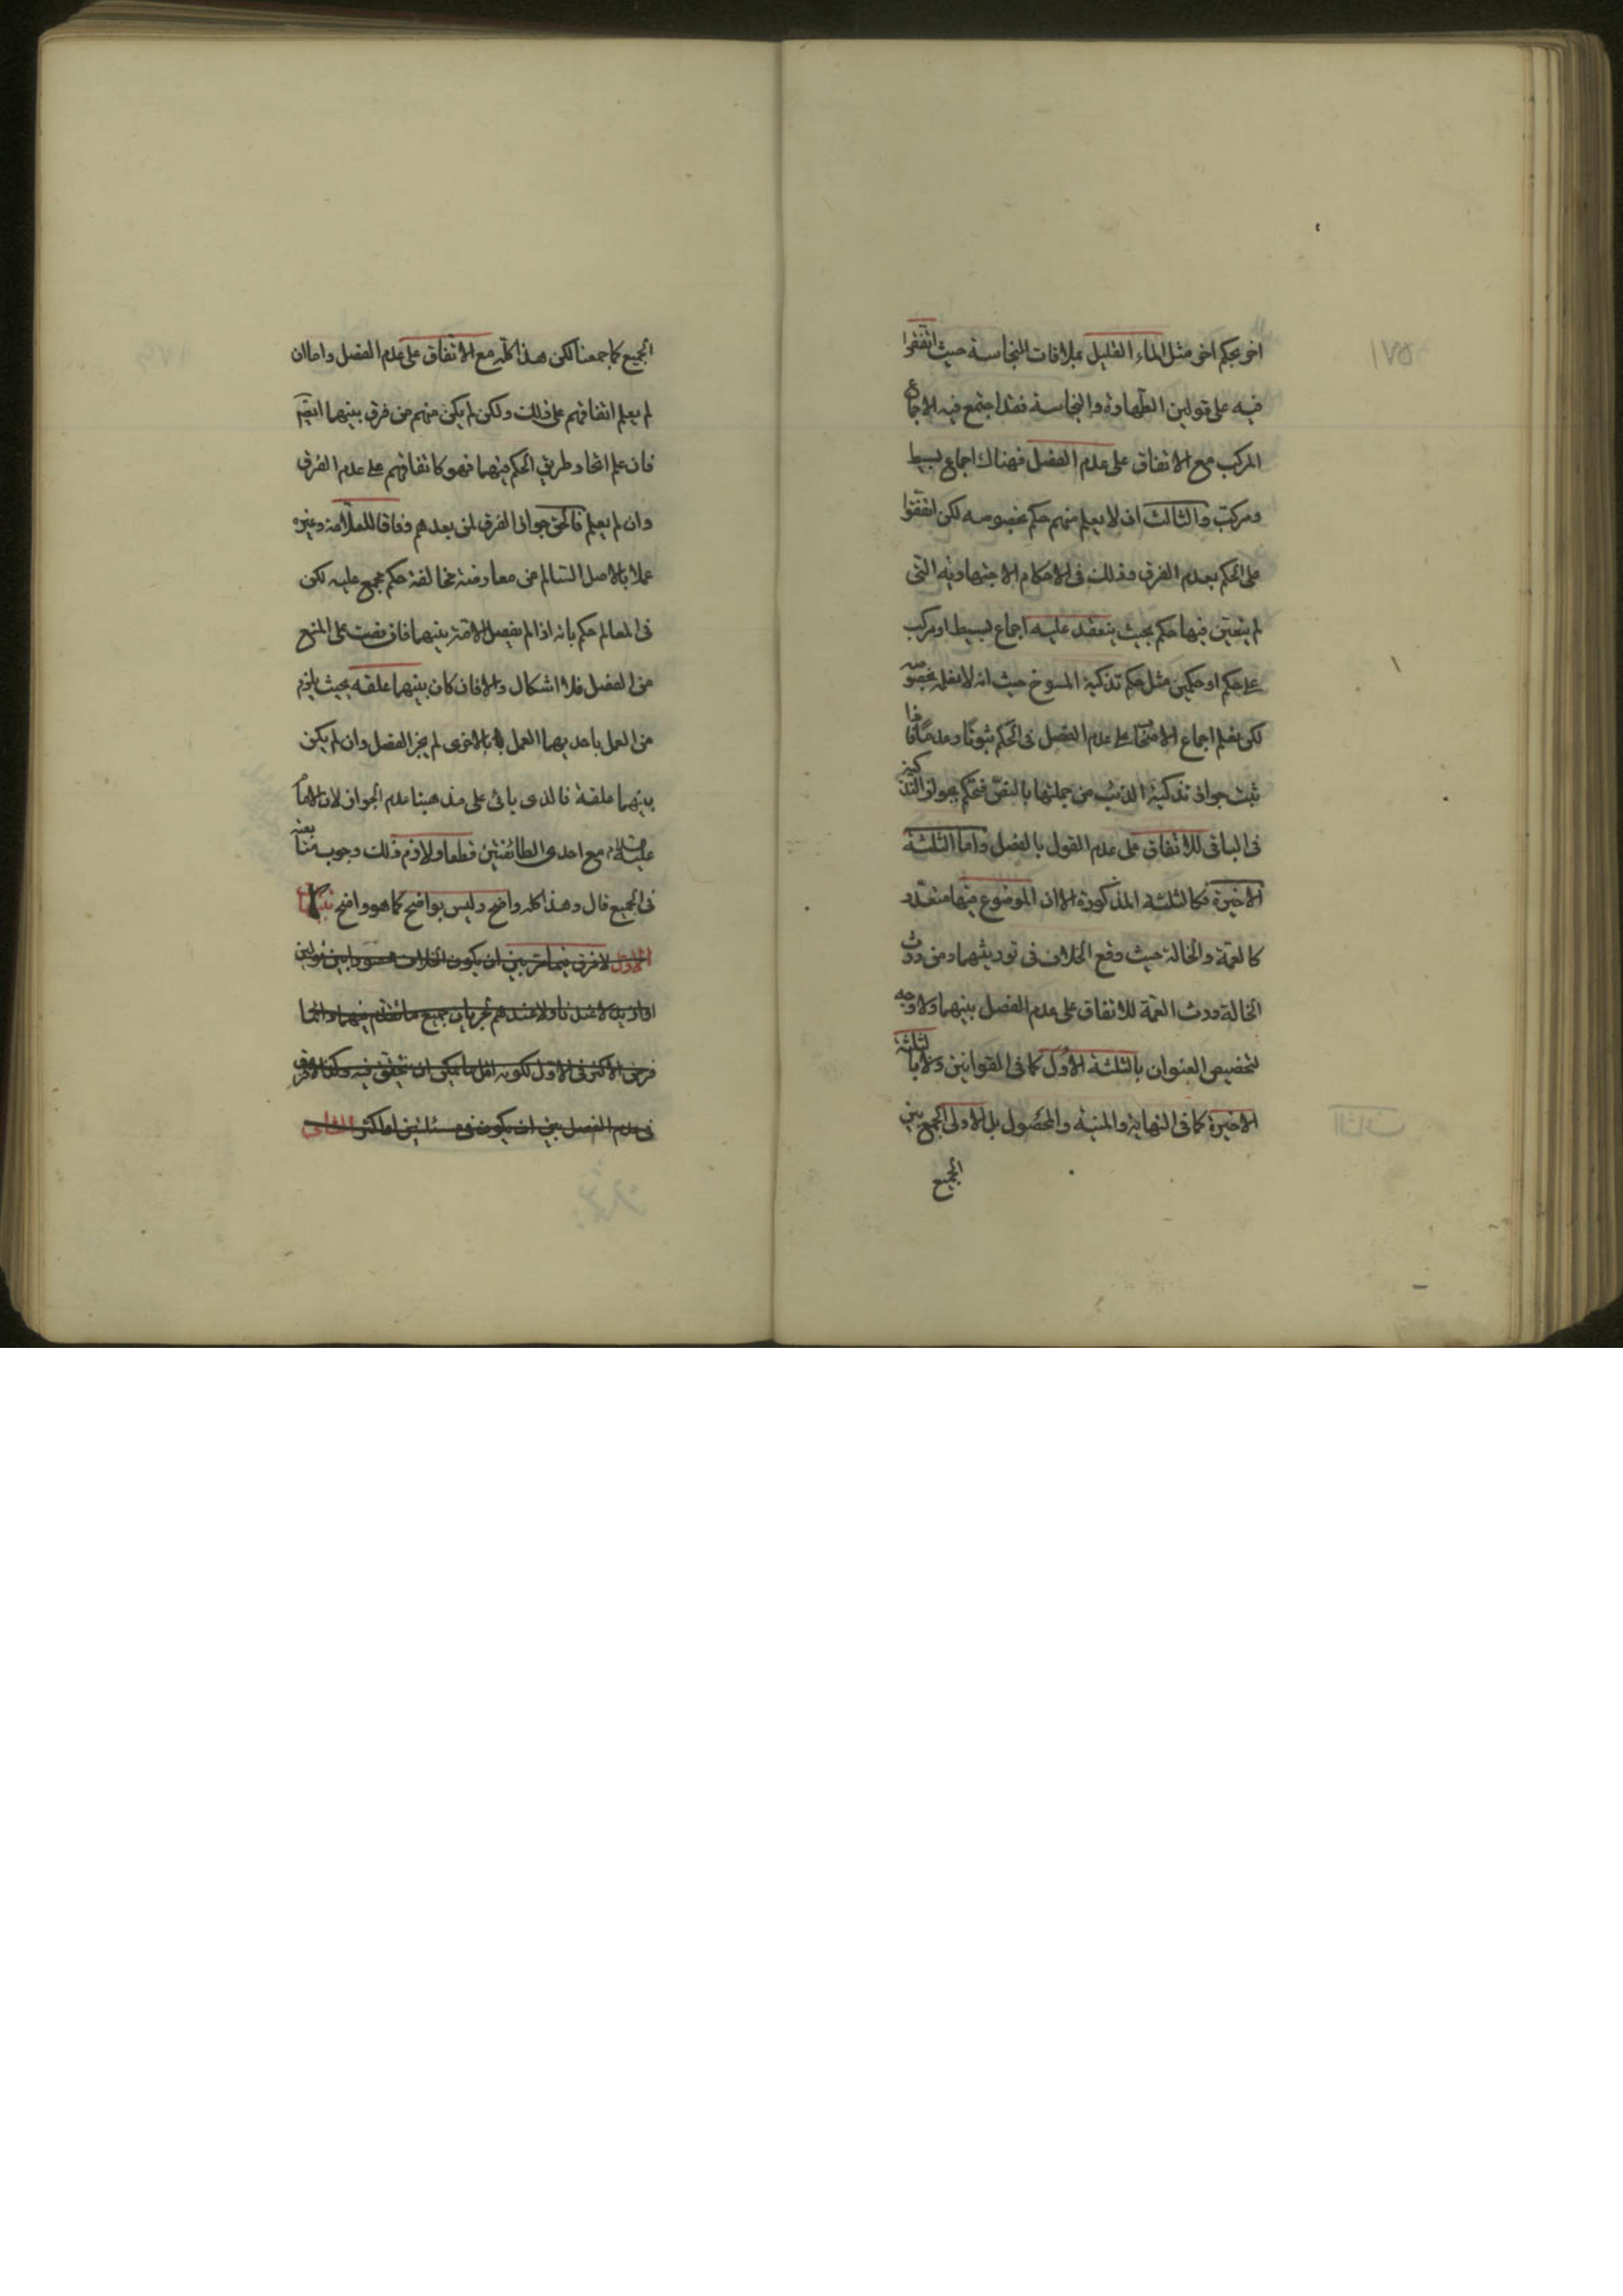 اخر بحكم اخر مثل الماء القليل بملاقات النجاسة حيث اتفقوا
فيه على قولين الطهارة والنجاسة فقد اجتمع فيه الاجماع
المركب مع الاتفاق على عدم الفصل فهناك اجماع بسيط
ومركب والثالث ان لا يعلم منهم حكم بخصوصه لكن اتفقوا
على الحكم بعدم الفرق وذلك فى الاحكام الاجتهادية التى
لم يتعين فيها حكم بحيث ينعقد عليه اجماع بسيط او مركب
على حكم او حكمين مثل حكم تذكية المسوخ حيث انه لا نعلم بخصوصه
لكن نعلم اجماع الاصحاب على عدم الفصل فى الحكم ثبوتا وعدما فاذا
ثبت جواز تذكية الذئب من جملتها بالنص فنحكم بجواز التذكية
فى الباقى للاتفاق على عدم القول بالفصل واما الثلثة
الاخيرة فكالثلثة المذكورة الا ان الموضوع فيها متعدد
كالعمة والخالة حيث وقع الخلاف فى توريثهما ومن ورث
الخالة ورث العمة للاتفاق على عدم الفصل بينهما ولا وجه
لتخصيص العنوان بالثلثة الاول كما فى القوانين ولا بالثلثة
الاخيرة كما فى النهاية والمنية والمحصول بل الاولى الجمع بين
الجميع
الجميع كما جمعنا لكن هذا كله مع الاتفاق على عدم الفصل واما ان
لم يعلم اتفاقهم على ذلك ولكن لم يكن منهم من فرق بينهما ايضم
فان علم اتحاد طريق الحكم فيهما فهو كاتفاقهم على عدم الفرق
وان لم يعلم فالحق جواز الفرق لمن بعدهم وفاقا للعلامة وغيره
عملا بالاصل السالم من معارضة مخالفة حكم مجمع عليه لكن
فى المعالم حكم بانه اذا لم يفصل الامة بينهما فان نصت على المنع
من الفصل فلا اشكال والا فان كان بينهما علقه بحيث يلزم
من العمل باحديهما العمل بالاخرى لم يجز الفصل وان لم يكن
بينهما علقة فالذى ياتى على مذهبنا عدم الجواز لان الامام
عليه السلام مع احدى الطائفتين قطعا ولازم ذلك وجوب متابعته
فى الجميع قال وهذا كله واضح وليس بواضح كما هو واضح
الاول لا فرق فيما مر بين ان يكون الخلاف محصورا بين قولين
او ازيد لا عندنا ولا عندهم لجريان جميع ما تقدم فيهما وانما
فرض الاكثر فى الاول لكونه اقل ما يمكن ان يتحقق فيه وكذا لا فرق
فى عدم الفصل بين ان يكون فى مسئلتين او اكثر الثانى